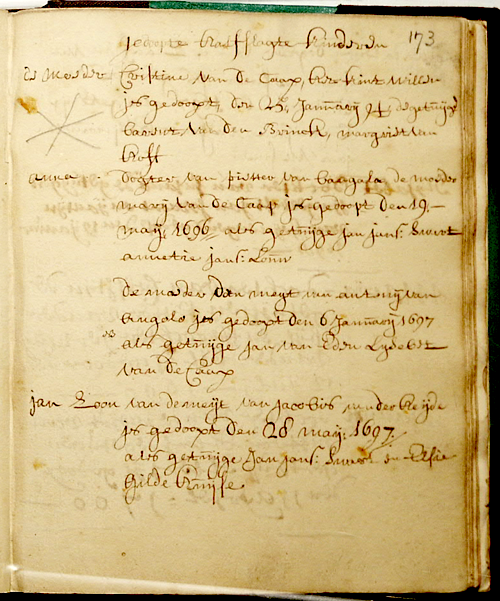 173
gedoopte halfslagte kinderen
de moeder Cristine van de Caap, haer kint willem
is gedoopt, den 25 Jannarij 94 de getuijge
barent van den Brinck, margriet van
hoff
anna dogter van pieter van bangala de moeder
marij van de Caap is gedoopt den 19
maij 1696 als getuijge jan jans: swart
annetie jans:
De moeder den meijt van antonij van
angola is gedoopt den 6 Jannarij 1697
als getuijge Jan van Eden Lijsebet
van de Caap
jan Zoon van de meijt van Jacobus van der heijde
is gedoopt den 28 maij: 1697
als getuijge Jan jans: swart en Elsie
hilde